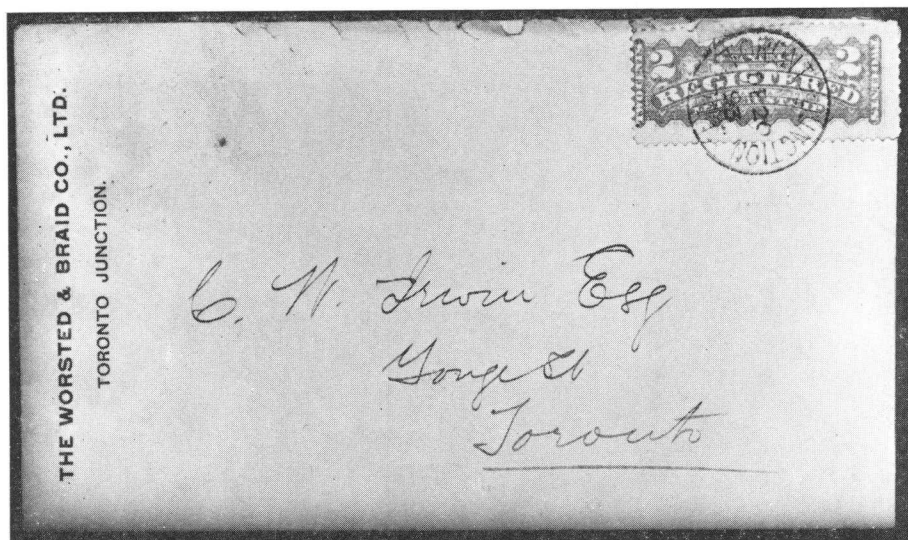 THE WORSTED & BRAID CO., LTD.
TORONTO JUNCTION.
2 REGISTERED 2
JUNCTION
C. W. Irwin Esq
Yonge St
Toronto